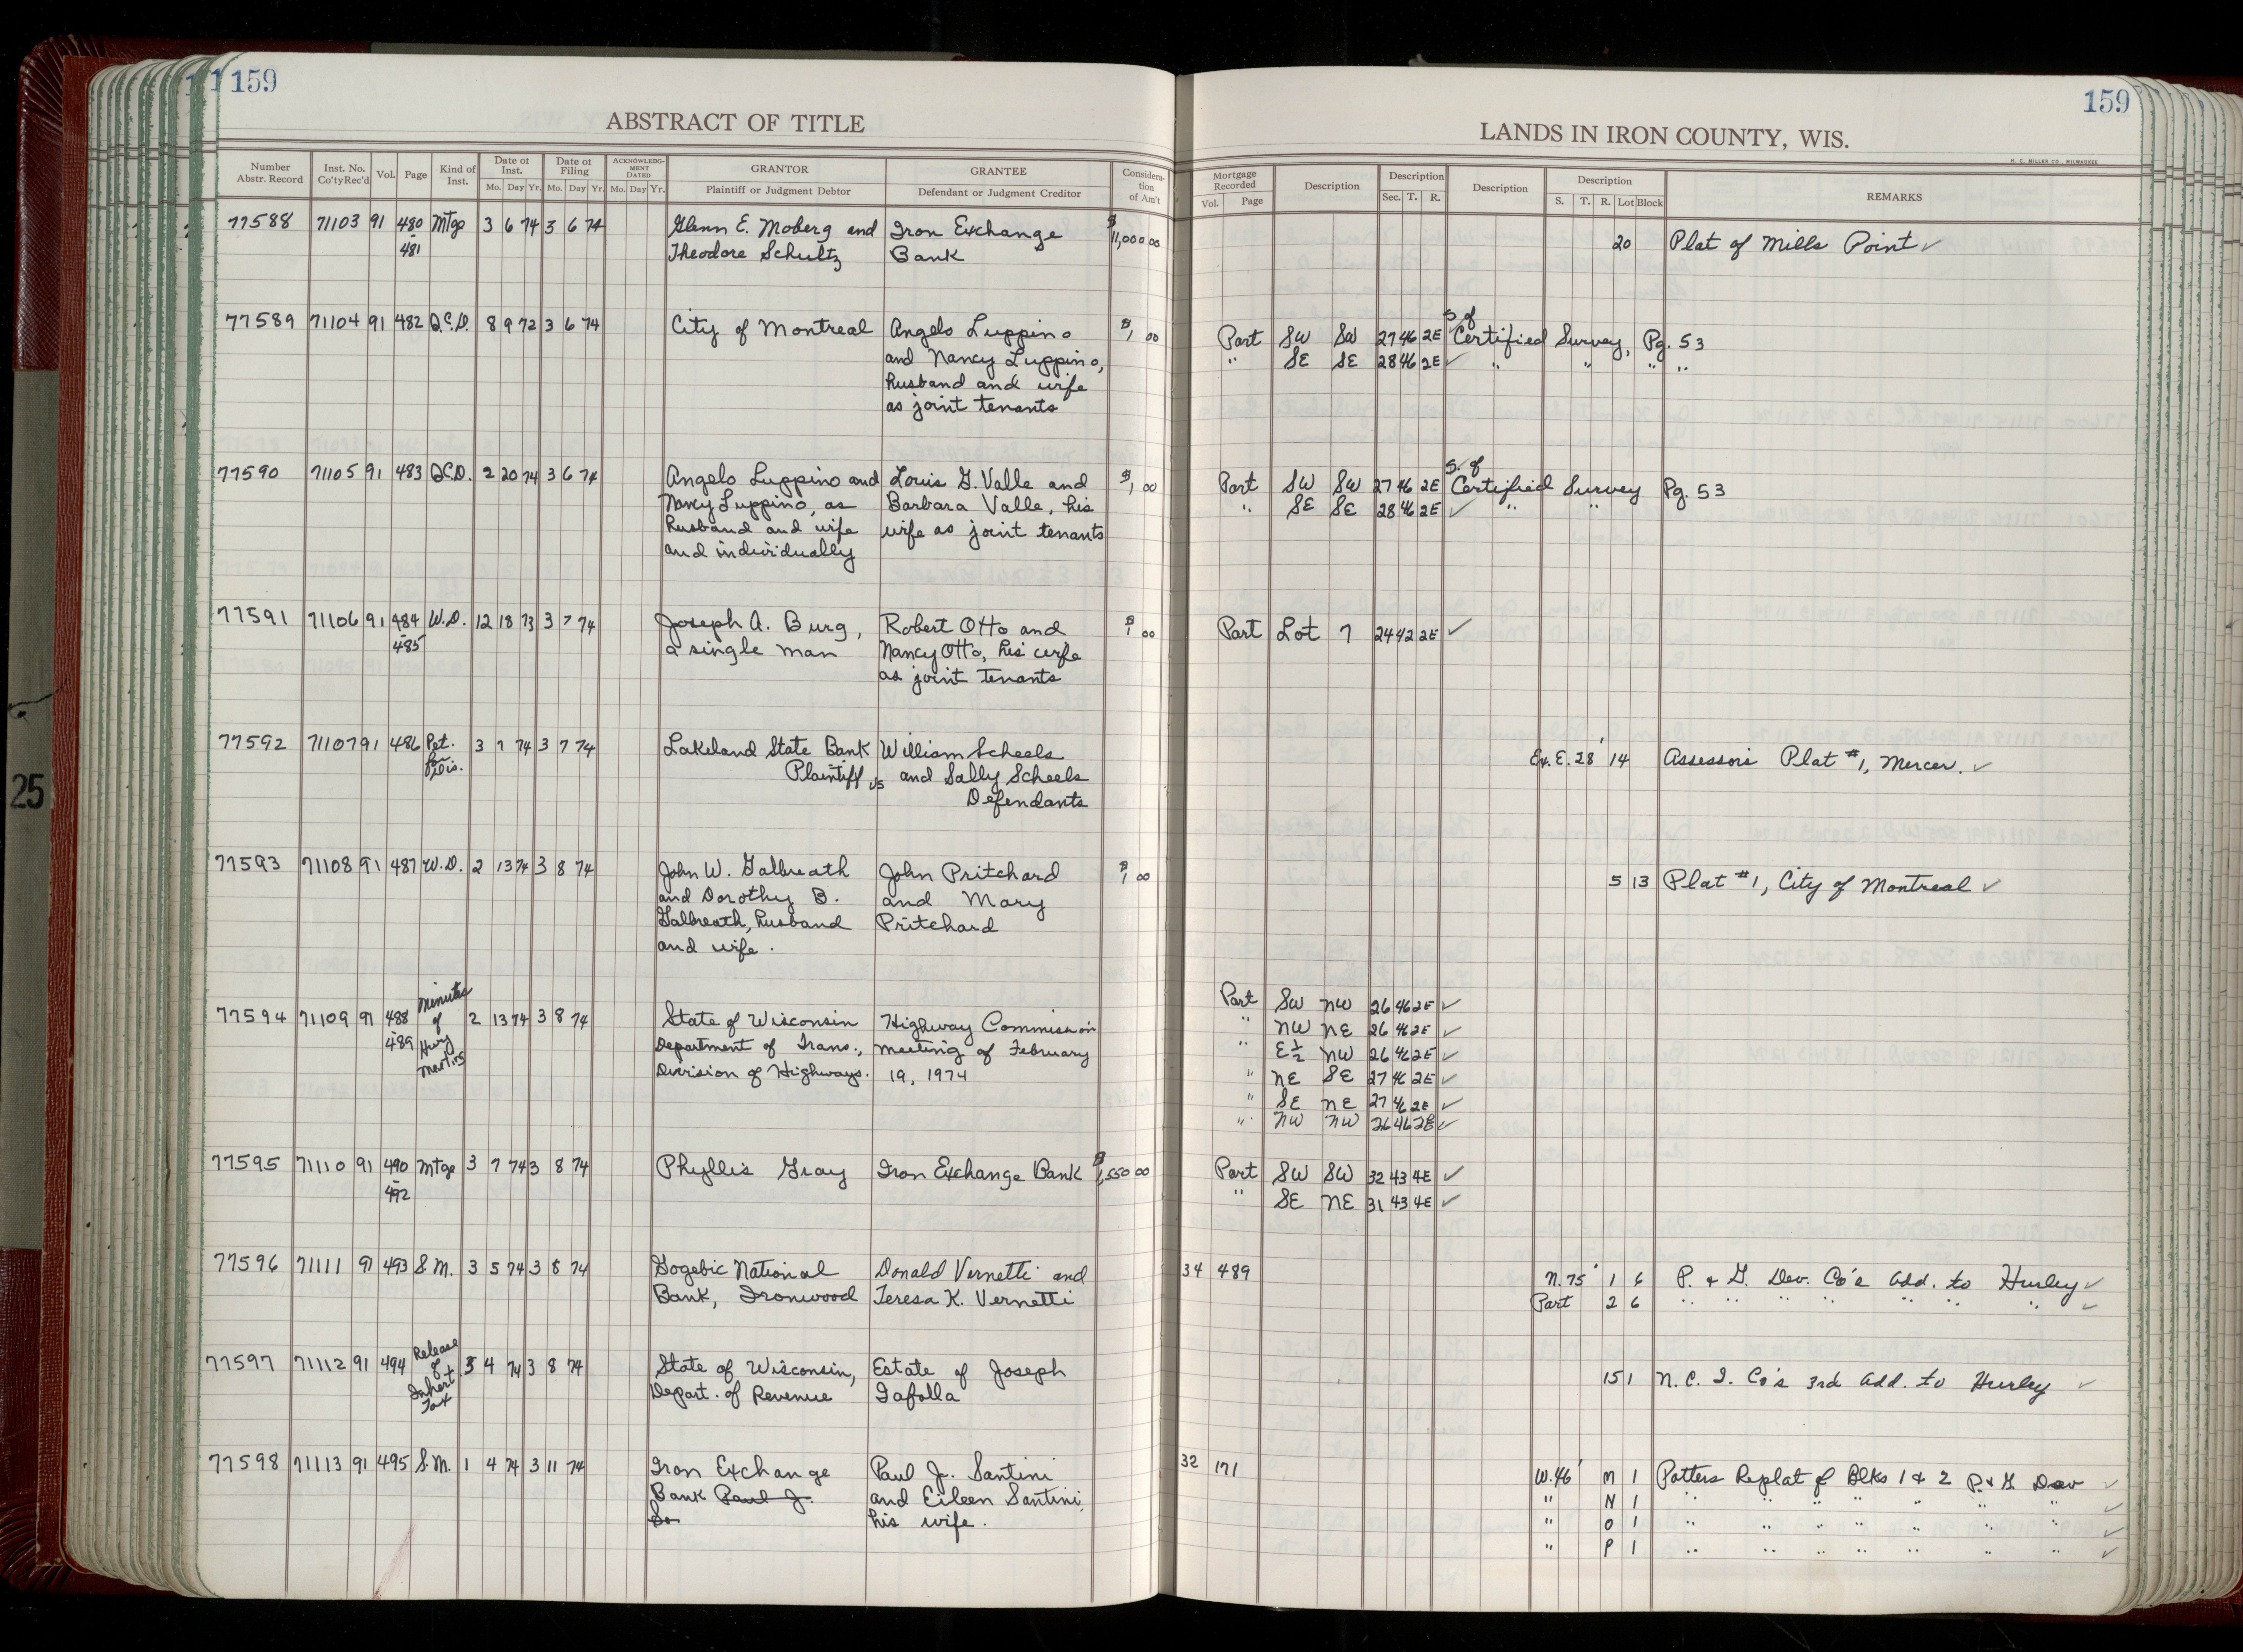 159
ABSTRACT OF TITLE
Number Abstr. Record Inst. No. Co'ty Rec'd Vol. Page Kind of Inst. Date of Inst. Mo. Day Yr. Date of Filing Mo. Day Yr. ACKNOWLEDG-MENT DATED Mo. Day Yr. GRANTOR Plaintiff or Judgment Debtor GRANTEE Defendant or Judgment Creditor Considera-tion of Am't
77588 71103 91 480 Mtge 3 6 74 3 6 74 Glenn E. Moberg and Iron Exchange $11,000 00
- 481 Theodore Schultz Bank
77589 71104 91 482 Q.C.D. 8 9 72 3 6 74 City of Montreal Angelo Luppino $1 00
and Nancy Luppino,
husband and wife
as joint tenants
77590 71105 91 483 Q.C.D. 2 20 74 3 6 74 Angelo Luppino and Louis G. Valle and $1 00
Nancy Luppino, as Barbara Valle, his
husband and wife wife as joint tenants
and individually
77591 71106 91 484 W.D. 12 18 73 3 7 74 Joseph A. Burg, Robert Otto and $1 00
- 485 a single man Nancy Otto, his wife
as joint tenants
77592 71107 91 486 Pet. 3 7 74 3 7 74 Lakeland State Bank William Scheels
for Plaintiff vs and Sally Scheels
Dis. Defendants
77593 71108 91 487 W.D. 2 13 74 3 8 74 John W. Galbreath John Pritchard $1 00
and Dorothy B. and Mary
Galbreath, husband Pritchard
and wife.
Minutes
77594 71109 91 488 of 2 13 74 3 8 74 State of Wisconsin Highway Commission
- 489 Hwy Department of Trans., meeting of February
Division of Highways. 19, 1974
77595 71110 91 490 Mtge 3 7 74 3 8 74 Phyllis Gray Iron Exchange Bank $1,550 00
- 492
77596 71111 91 493 S.M. 3 5 74 3 8 74 Gogebic National Donald Vernetti and
Bank, Ironwood Teresa K. Vernetti
Release
77597 71112 91 494 of 3 4 74 3 8 74 State of Wisconsin, Estate of Joseph
Inhert. Depart. of Revenue Gafolla
Tax
77598 71113 91 495 S.M. 1 4 74 3 11 74 Iron Exchange Paul J. Santini
Bank Paul J. and Eileen Santini,
Sa his wife.
25
159
LANDS IN IRON COUNTY, WIS.
H. C. MILLER CO., MILWAUKEE
Mortgage Recorded Vol. Page Description Description Sec. T. R. Description Description S. T. R. Lot Block REMARKS
20 Plat of Mills Point ✓
S. of
Part SW SW 27 46 2E Certified Survey, Pg. 53
" SE SE 28 46 2E ✓ " " " "
S. of
Part SW SW 27 46 2E Certified Survey Pg. 53
" SE SE 28 46 2E ✓ " "
Part Lot 7 24 42 2E ✓
Ex. E. 28' 14 Assessors Plat #1, Mercer. ✓
5 13 Plat #1, City of Montreal ✓
Part SW NW 26 46 2E ✓
" NW NE 26 46 2E ✓
" E½ NW 26 46 2E ✓
" NE SE 27 46 2E ✓
" SE NE 27 46 2E ✓
" NW NW 26 46 2E ✓
Part SW SW 32 43 4E ✓
" SE NE 31 43 4E ✓
34 489 N. 75' 1 6 P. & G. Dev. Co's Add. to Hurley ✓
Part 2 6 " " " " " " " ✓
15 1 N. C. I. Co's 3rd Add. to Hurley ✓
32 171 W. 46' M 1 Potters Replat of Blks 1 & 2 P. & G. Dev ✓
" N 1 " " " " " " " ✓
" O 1 " " " " " " " ✓
" P 1 " " " " " " " ✓